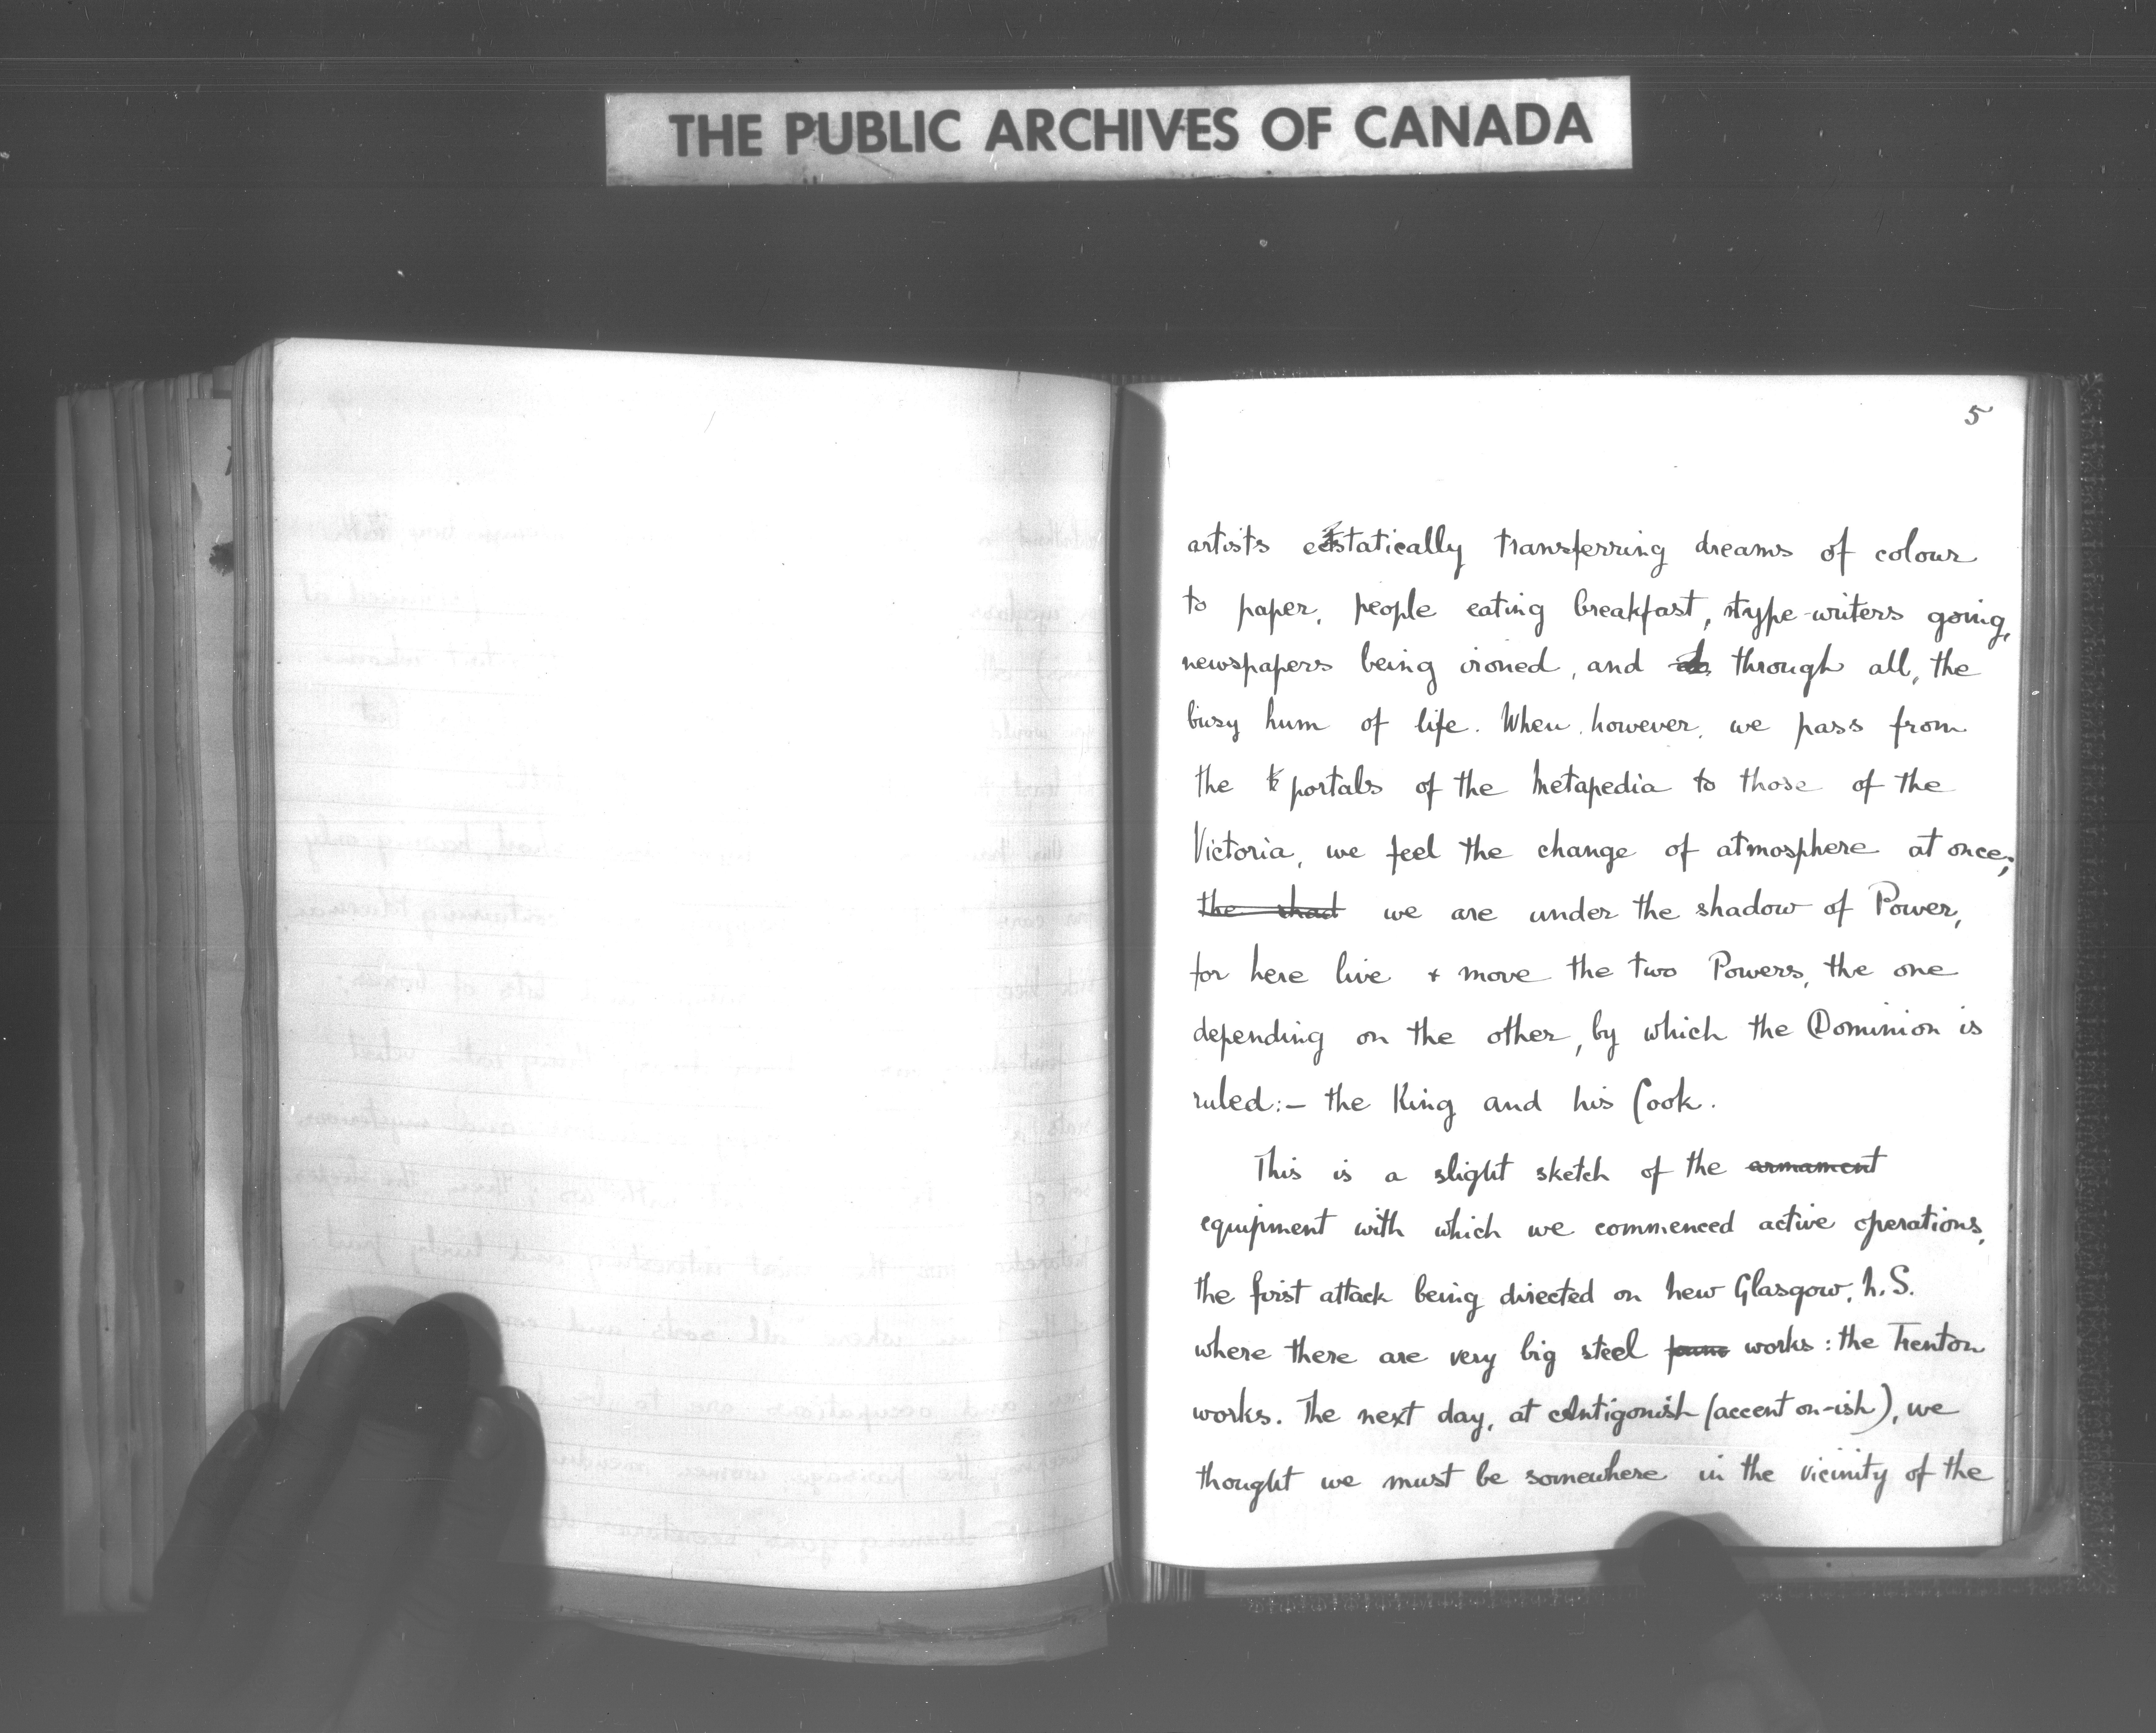 THE PUBLIC ARCHIVES OF CANADA
5
artists ecstatically transferring dreams of colour
to paper, people eating breakfast, type-writers going,
newspapers being ironed, and through all, the
busy hum of life. When, however, we pass from
the portals of the Metapedia to those of the
Victoria, we feel the change of atmosphere at once;
the shad we are under the shadow of Power,
for here live + move the two Powers, the one
depending on the other, by which the Dominion is
ruled:- the King and his Cook.
This is a slight sketch of the armament
equipment with which we commenced active operations,
the first attack being directed on New Glasgow, N.S.
where there are very big steel works: the Trenton
works. The next day, at Antigonish (accent on -ish), we
thought we must be somewhere in the vicinity of the